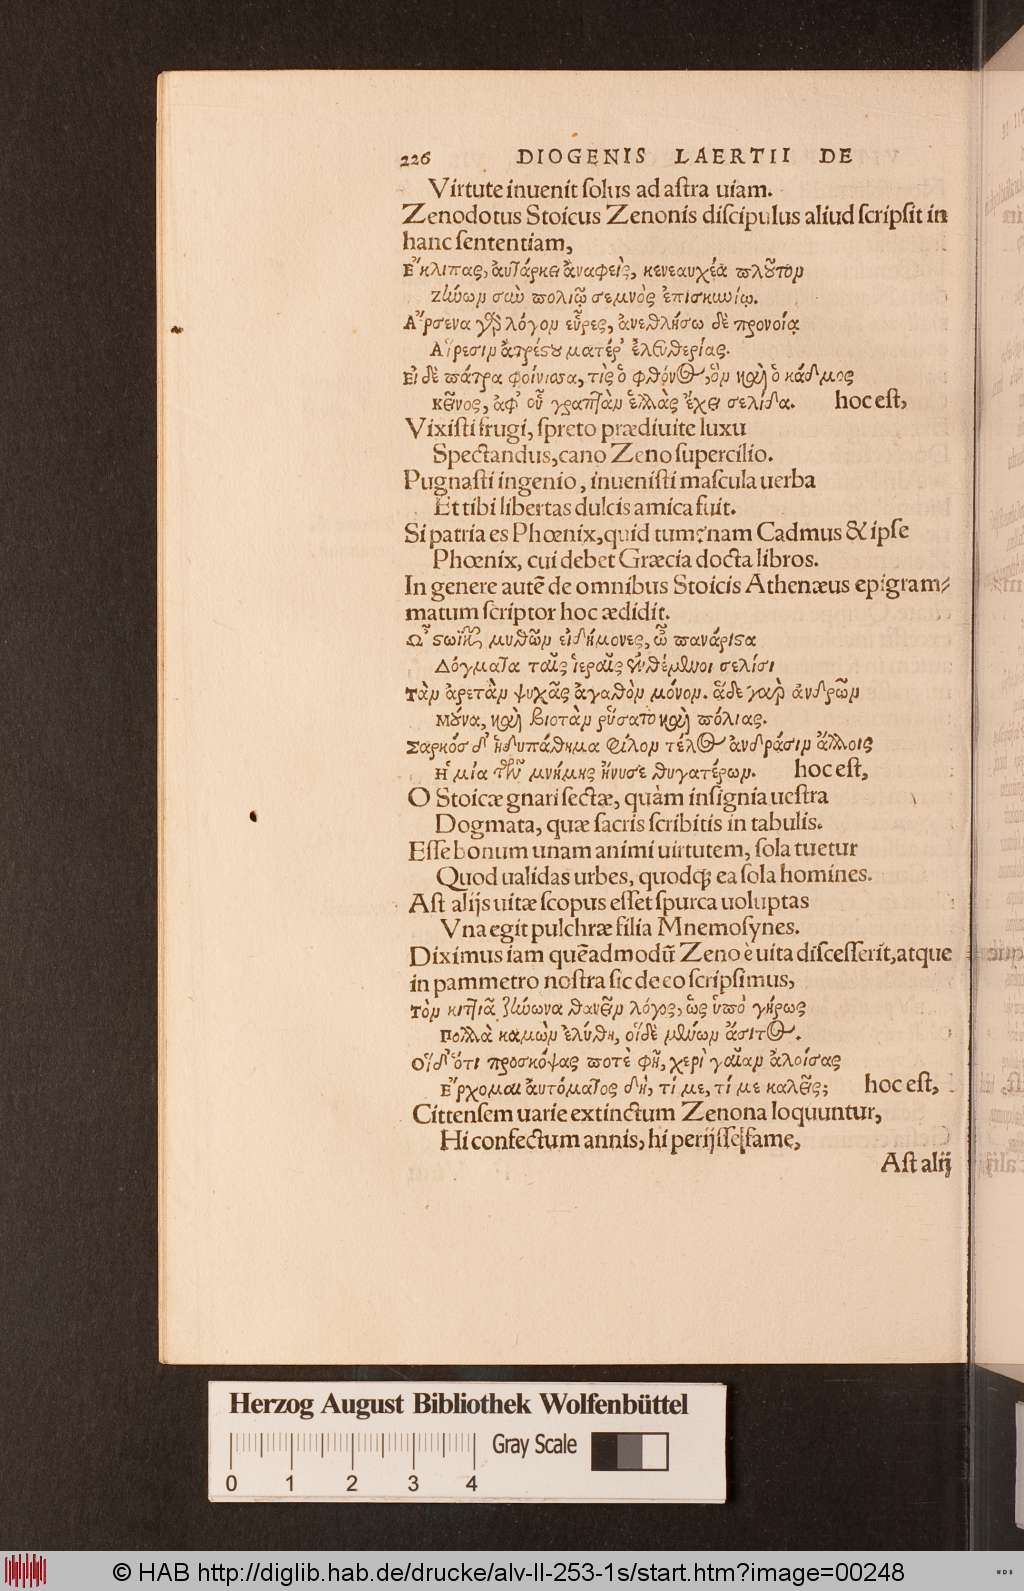 226 DIOGENIS LAERTII DE
Virtute inuenit ſolus ad aſtra uiam.
Zenodotus Stoicus Zenonis diſcipulus aliud ſcripſit in
hanc ſententiam,
Ε῎κλιπας, αὐτάρκει ἀναφεὶς, κενεαυχέα πλοῦτον
Ζήνων σὺν πολιῷ σεμνὸς ἐπισκυνίῳ.
Α῎ρσενα γὰρ λόγον εὗρες, ἀνεθλήσω δὲ προνοίᾳ
Αἵρεσιν ἀτρέστου ματέρ' ἐλευθερίας.
Εἰ δὲ πάτρα φοίνισσα, τὶς ὁ φθόνος, ὃν καὶ ὁ κάδμος
κεῖνος, ἀφ' οὗ γραπτὰν ἑλλὰς ἔχει σελίδα. hoc eſt,
Vixiſti frugi, ſpreto prædiuite luxu
Spectandus, cano Zeno ſupercilio.
Pugnaſti ingenio, inueniſti maſcula uerba
Et tibi libertas dulcis amica fuit.
Si patria es Phœnix, quid tum? nam Cadmus & ipſe
Phœnix, cui debet Græcia docta libros.
In genere autē de omnibus Stoicis Athenæus epigram⸗
matum ſcriptor hoc ædidit.
Ω῏ στωϊκῶν μυθῶν εἰδήμονες, ὦ πανάριστα
Δόγματα ταῖς ἱεραῖς ἐνθέμενοι σελίσι
Τὰν ἀρετὰν ψυχᾶς ἀγαθὸν μόνον. ἅδε γαρ ἀνδρῶν
Μούνα, καὶ βιοτὰν ῥύσατο καὶ πόλιας.
Σαρκός δ' ἡδυπάθημα φίλον τέλος ἀνδράσιν ἄλλοις
Η῾ μία τῶν μνήμης ἤνυσε θυγατέρων. hoc eſt,
O Stoicæ gnari ſectæ, quàm inſignia ueſtra
Dogmata, quæ ſacris ſcribitis in tabulis.
Eſſe bonum unam animi uirtutem, ſola tuetur
Quod ualidas urbes, quodq; ea ſola homines.
Aſt alijs uitæ ſcopus eſſet ſpurca uoluptas
Vna egit pulchræ filia Mnemoſynes.
Diximus iam quēadmodū Zeno è uita diſceſſerit, atque
in pammetro noſtra ſic de eo ſcripſimus,
Τὸν κιτιᾶ ζήνωνα θανεῖν λόγος, ὡς ὑπὸ γήρως
Πολλὰ καμὼν ἐλύθη, οἵδὲ μένων ἄσιτος.
Οἵδ' ὅτι προσκόψας ποτὲ φῆ, χερὶ γαῖαν ἀλοίσας
Ε῎ρχομαι αὐτόματος δὴ, τί με, τί με καλεῖς; hoc eſt,
Cittenſem uarie extinctum Zenona loquuntur,
Hi confectum annis, hi perijſſe fame,
Aſt alij
Herzog August Bibliothek Wolfenbüttel
Gray Scale
0 1 2 3 4
© HAB http://diglib.hab.de/drucke/alv-ll-253-1s/start.htm?image=00248